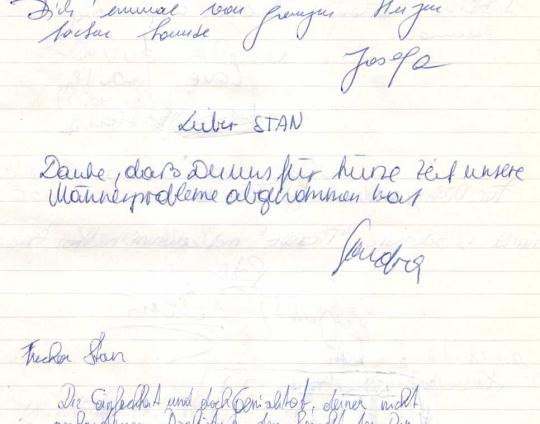 Dich einmal von ganzem Herzen
Josefa
Lieber STAN
Danke, daß Du uns für kurze Zeit unsere
Männerprobleme abgenommen hast
Sandra
Stan
Die Einfachheit und doch Genialität, deiner nicht